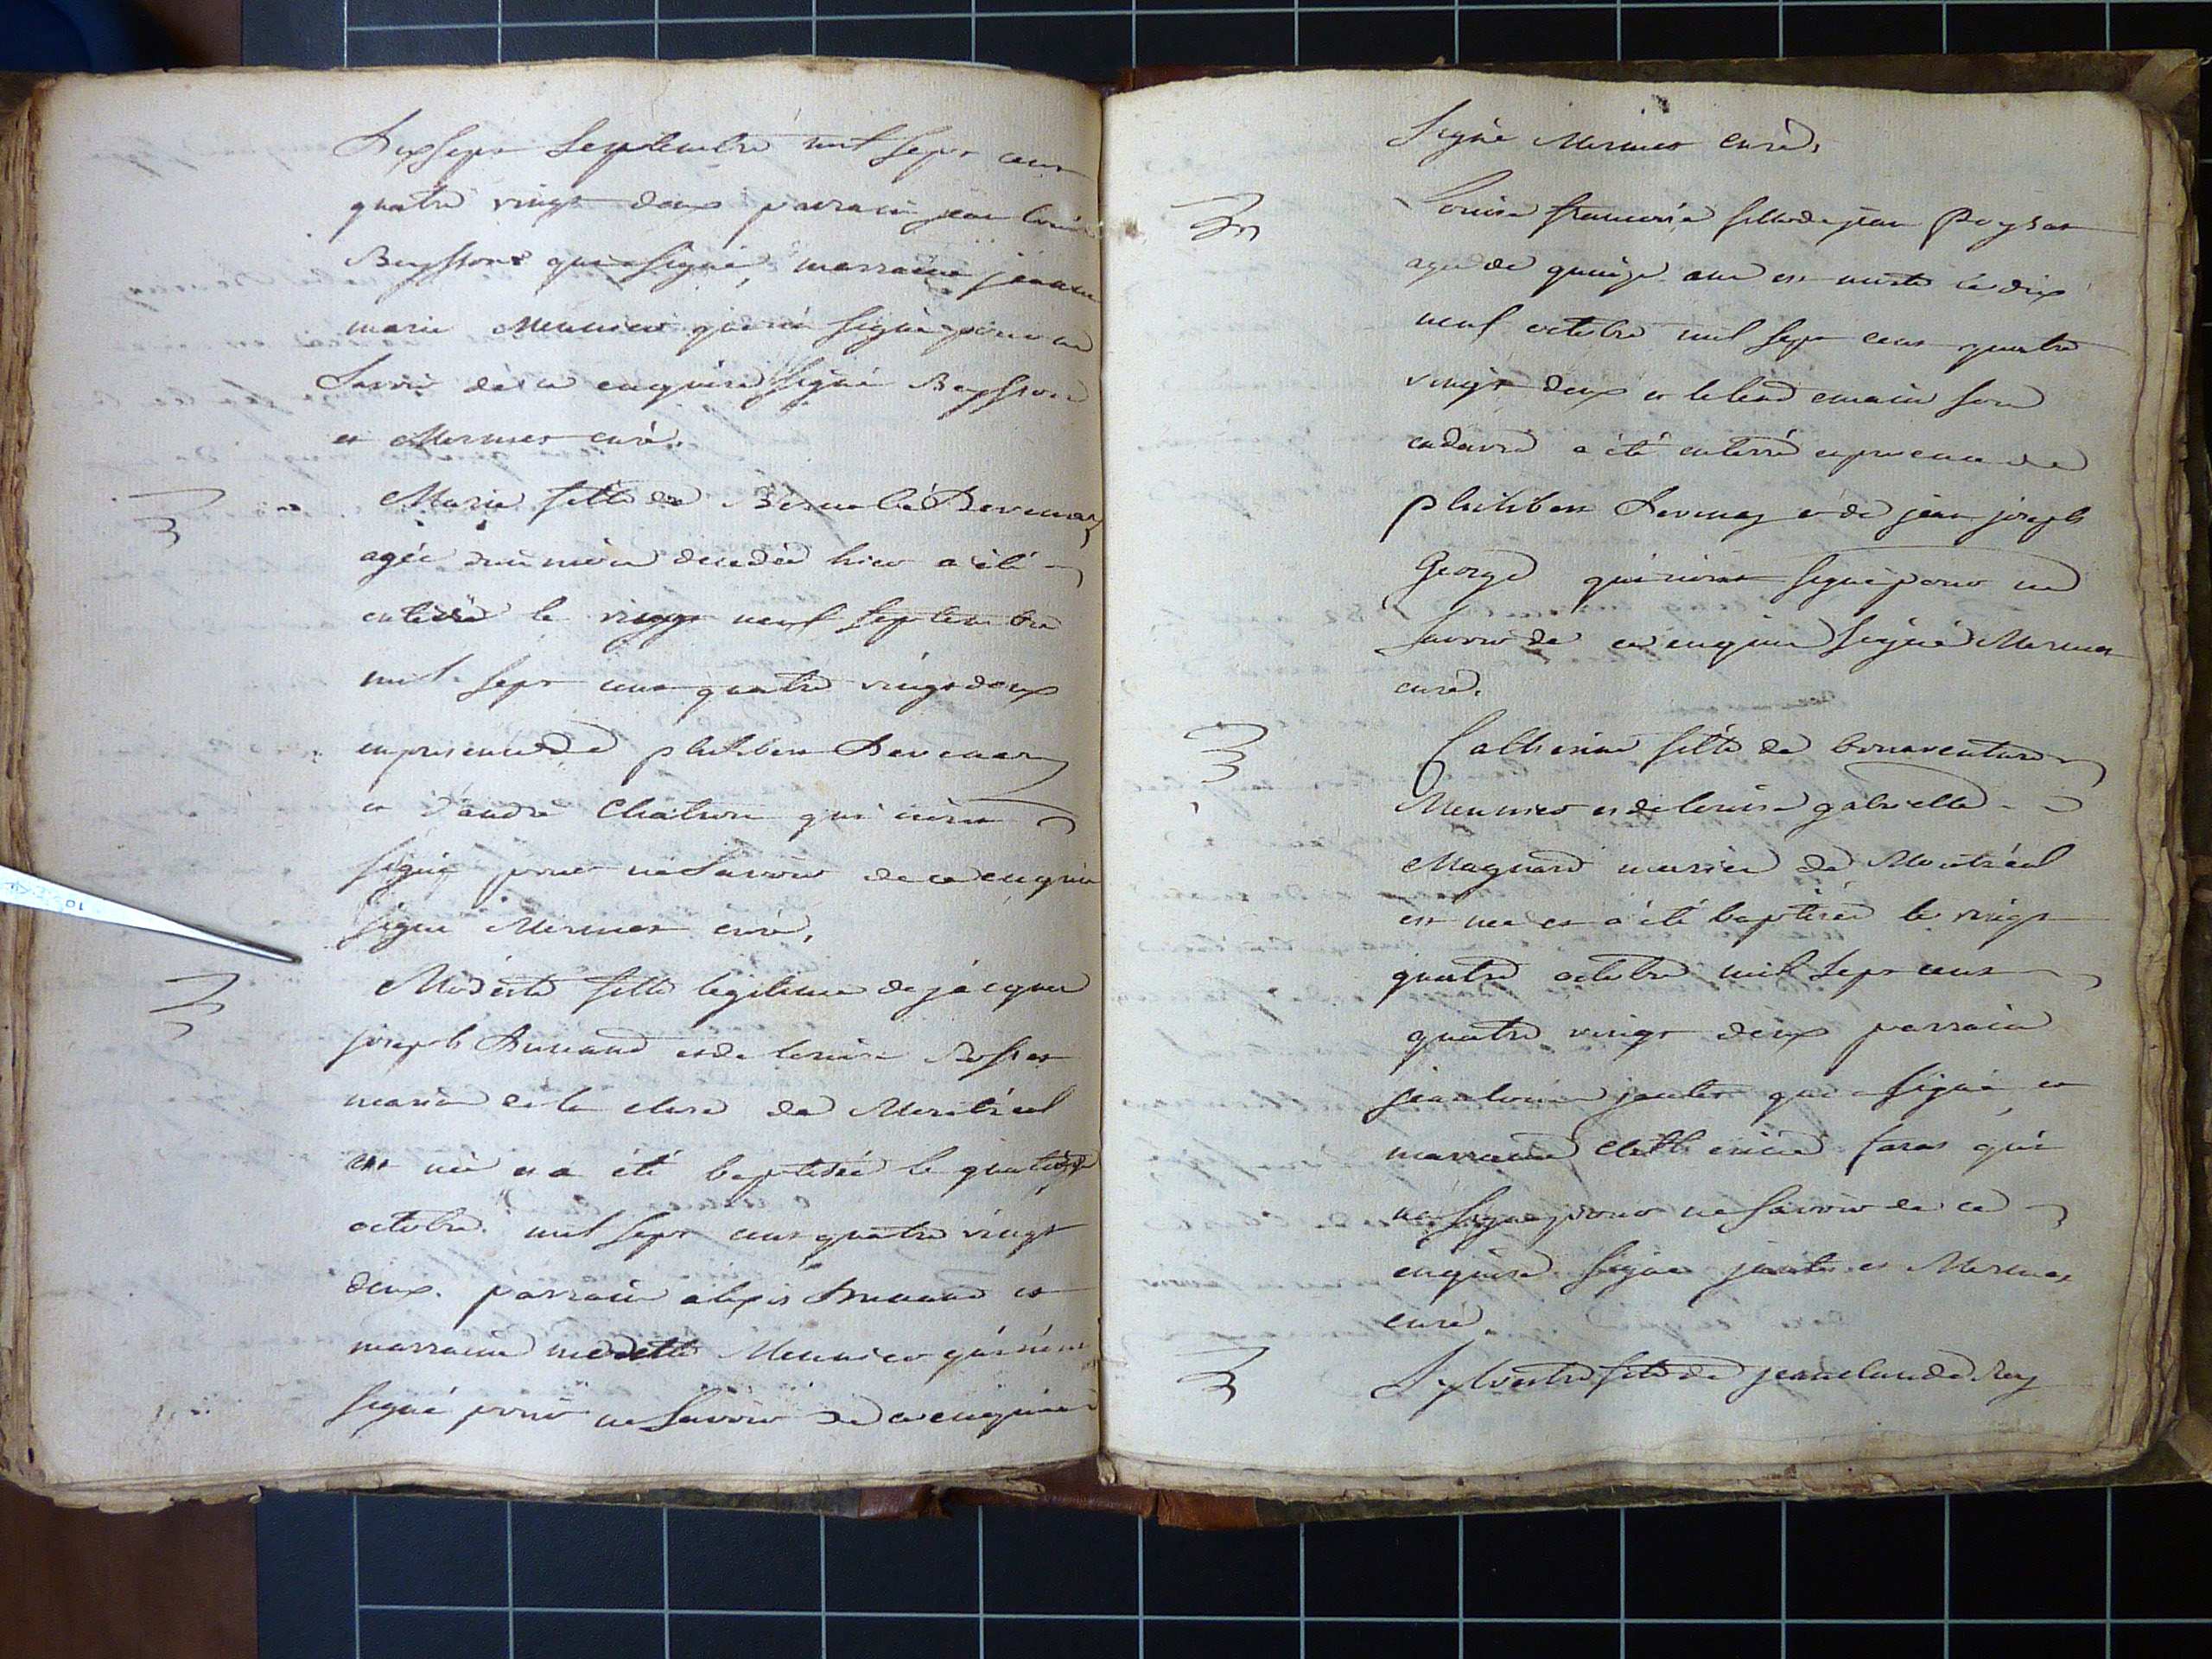 Dix sept Septembre mil sept cent
quatre vingt deux parrain jean louis
Beyssont qui a signé, marraine jeanne
marie Meunier qui n'a signé pour ne
Savoir de ce enquise signé Beysson
et Mermet curé.
Marie fille de Bernabé Devenaz
agée d'un mois decedée hier a été
enterrée le vingt neuf Septembre
mil Sept cent quatre vingt deux
en presence de philibert Devenaz
et d'andré Chatron qui n'ont
signé pour ne Savoir de ce enquis
signé Mermet curé.
Modeste fille legitime de jacque
joseph Dunand et de louise Rosset
mariés de la cluse de Montréal
est née et a été baptisée le quatorze
octobre mil sept cent quatre vingt
deux. parrain alexis Dunand et
marraine modeste Meunier qui n'ont
signé pour ne Savoir de ce enquis
signé Mermet curé,
Louise francoise fille de jean
agée de quinze ans est morte le dix
neuf octobre mil sept cent quatre
vingt deux et le lendemain son
cadavre a été enterré en presence de
philibert Devenaz et de jean joseph
George qui n'ont signé pour ne
savoir de ce enquis signé Mermet
curé.
Catherine fille de bonaventure
Meunier et de louise gabrielle
Magnard mariés de Montréal
est née et a été baptisée le vingt
quatre octobre mil Sept cent
quatre vingt deux parrain
jean louis jantet qui a signé et
marraine Catherine faras qui
ne signe pour ne Savoir de ce
enquise signé jantet et Mermet
curé.
Sylvestre fils de jean claude Rey